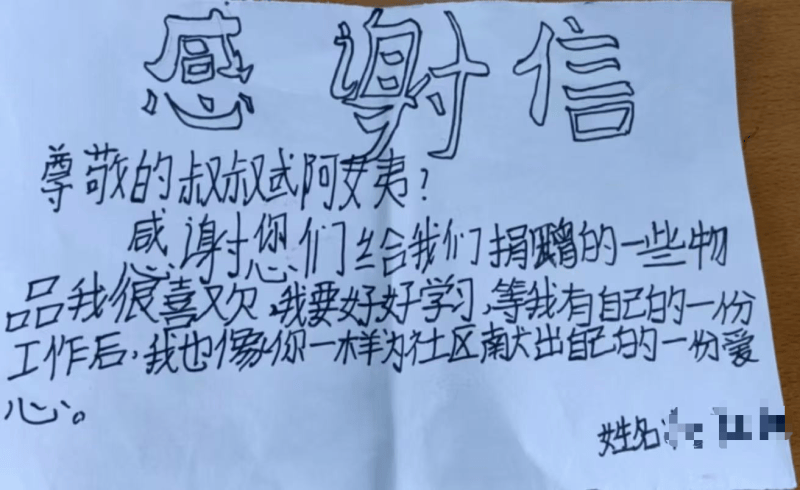 感谢信
尊敬的叔叔或阿姨?
感谢您们给我们捐赠的一些物
品我很喜欢,我要好好学习,等我有自己的一份
工作后,我也像你一样为社区献出自己的一份爱
心。
姓名